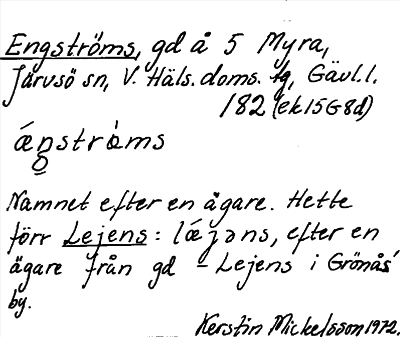 Engströms, gd å 5 Myra,
Järvsö sn, V. Häls. doms. tg, Gävl. l.
182 (ek15G8d)
ǽŋstrὼms
Namnet efter en ägare. Hette
förr Lejens: lǽjəns, efter en
ägare från gd - Lejens i Grönås
by.
Kerstin Mickelsson 1972.